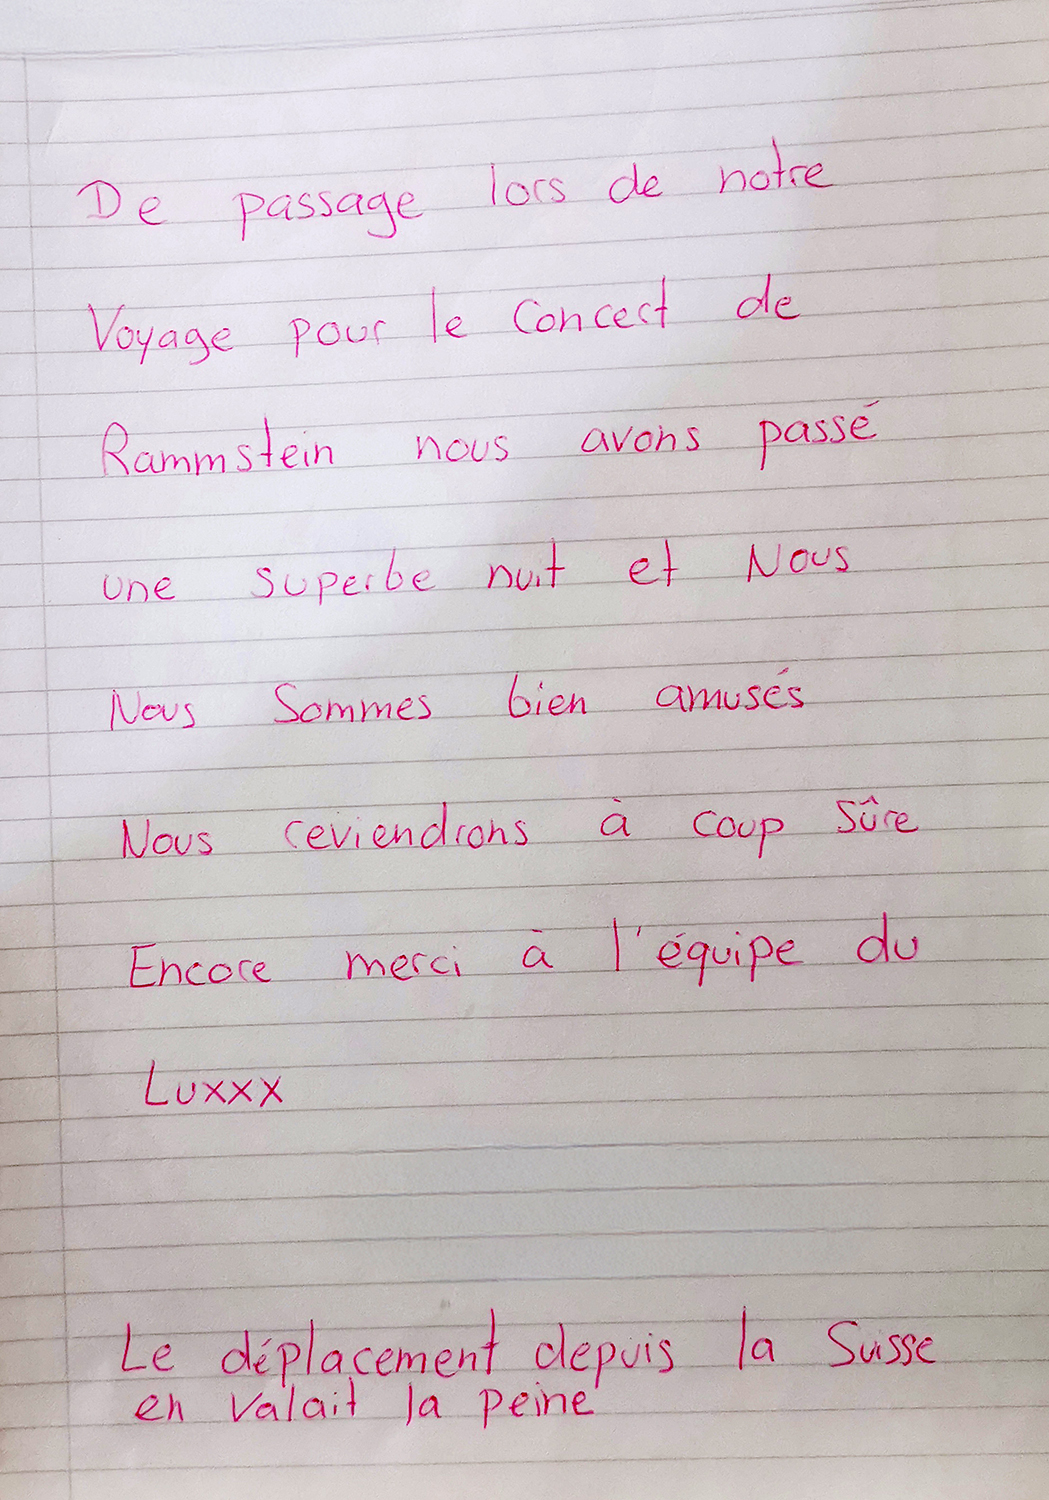 De passage lors de notre
Voyage pour le Concert de
Rammstein nous avons passé
une superbe nuit et Nous
Nous Sommes bien amusés
Nous reviendrons à coup sûre
Encore merci à l'équipe du
Luxxx
Le déplacement depuis la Suisse
en valait la peine